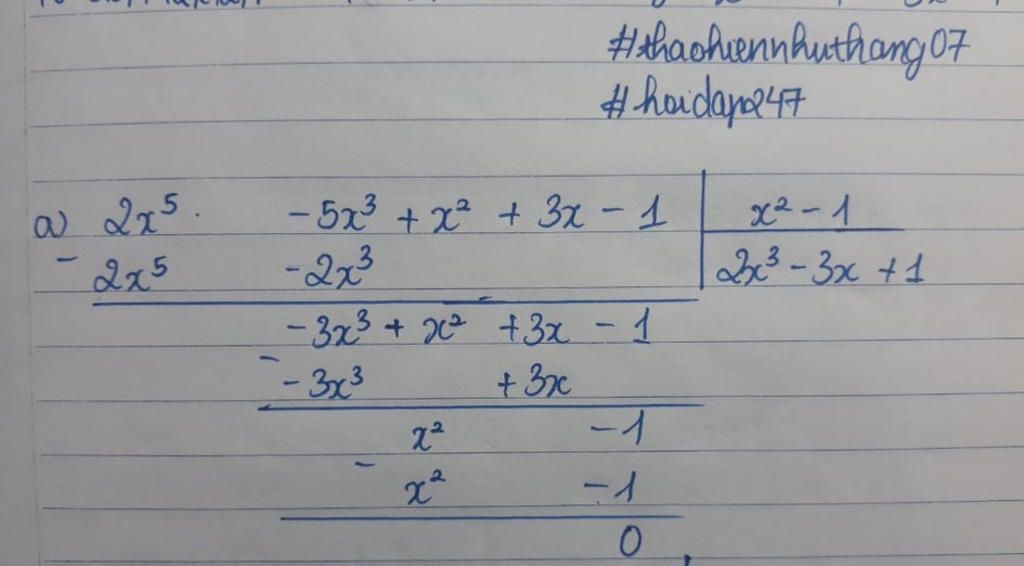 #thaohiennhuthang07
#hoidap247
a) 2x⁵ - 5x³ + x² + 3x - 1 | x² - 1
- 2x⁵ - 2x³ | 2x³ - 3x + 1
- 3x³ + x² + 3x - 1
- - 3x³ + 3x
x² - 1
- x² - 1
0